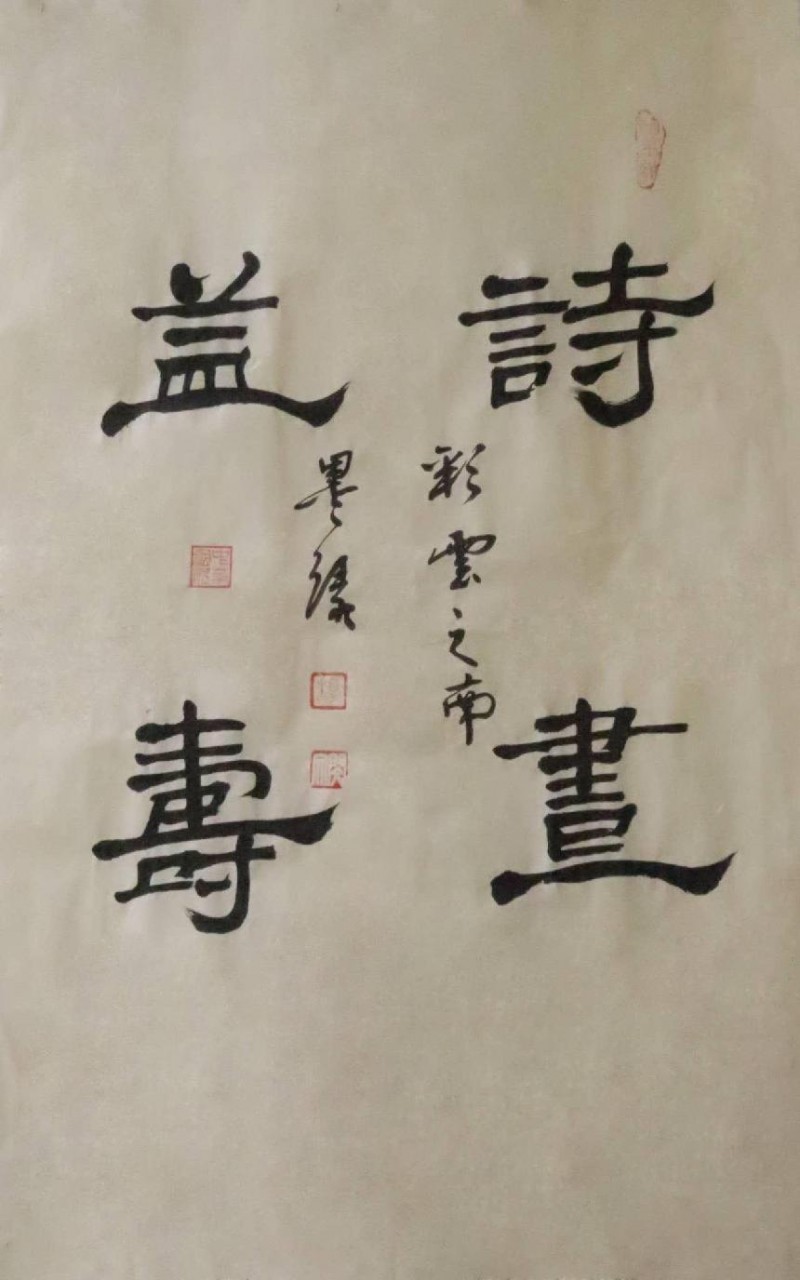 詩畫
益壽
彩雲之南
墨